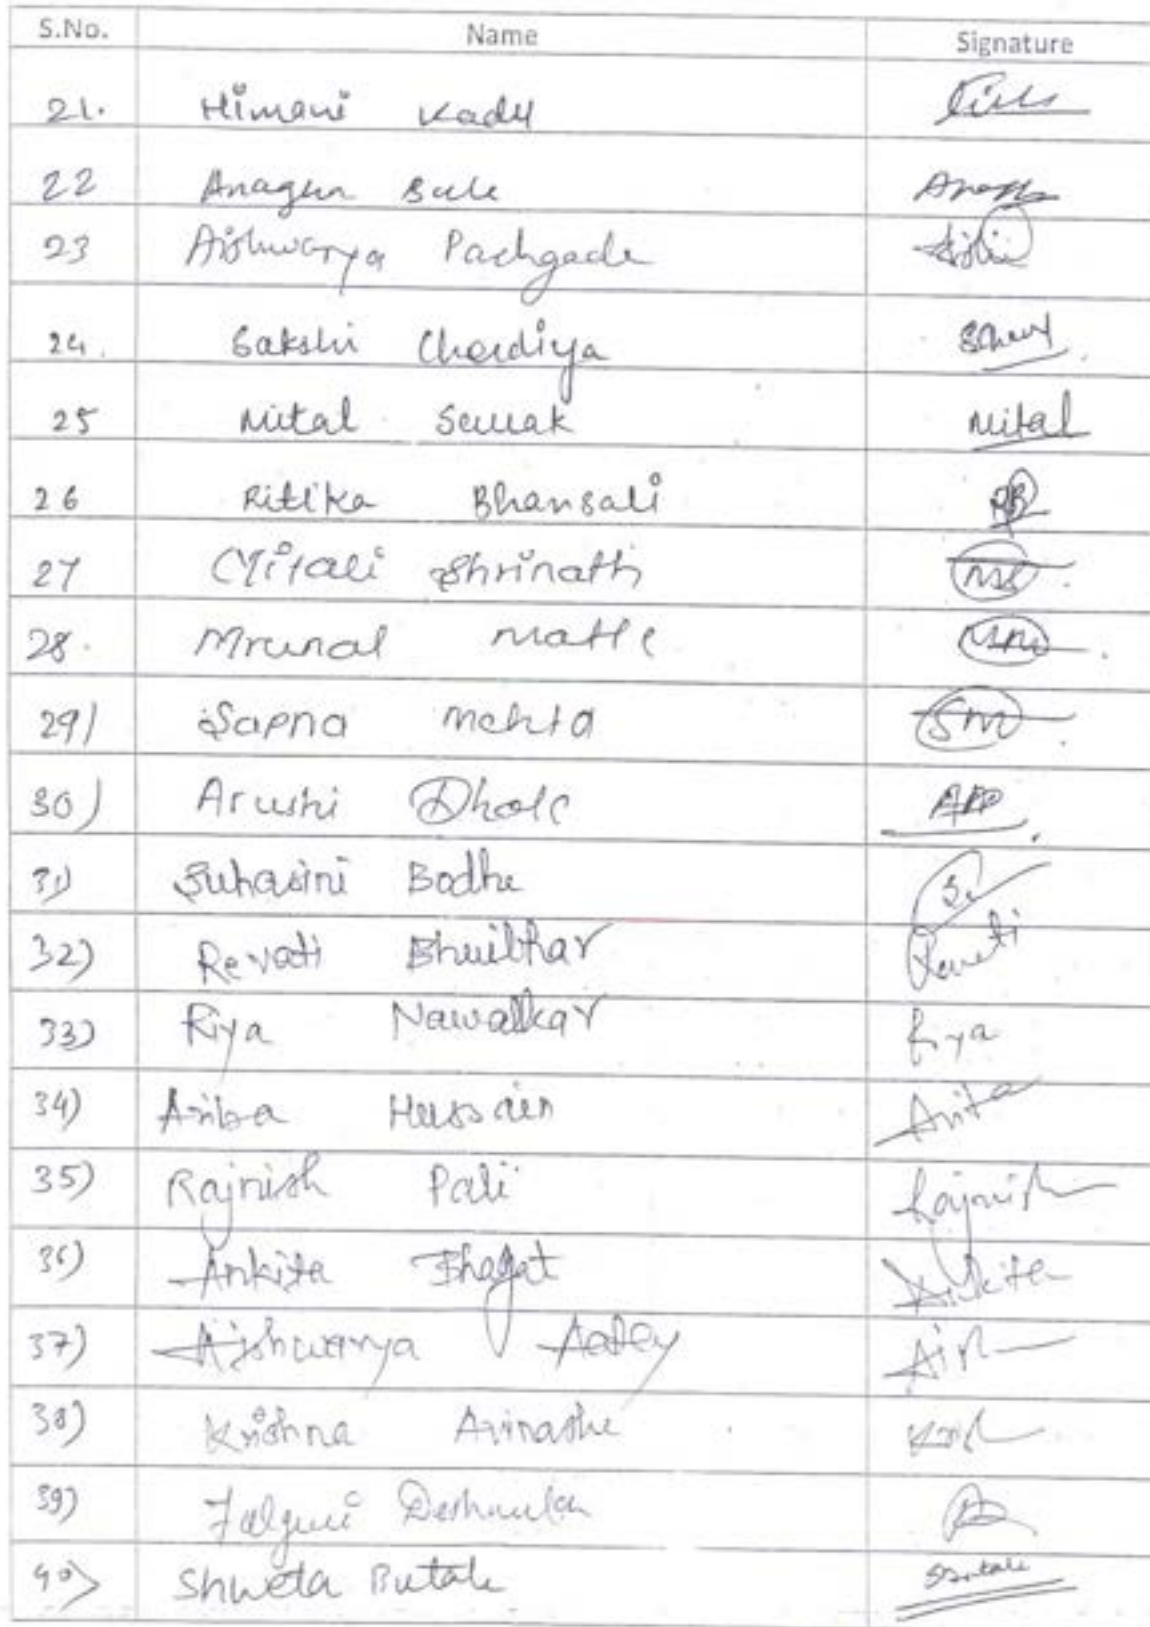 S.No. Name Signature
21. Himani Kadu
22 Anagha Bale
23 Aishwarya Pachgade
24. Sakshi Chordiya
25 Mital Mital
26 Ritika Bhansali RB
27 Mitali Shrinath
28. Mrunal Matte
29) Sapna Mehta SM
30) Arushi Dhole
31) Suhasini Bodhe S.
32) Revati Bhuibhar Revati
33) Riya Nawalkar Riya
34) Ariba Hussain
35) Rajnish Pali Rajnish
36) Ankita Bhagat Ankita
37) Aishwarya Aish
38) Krishna Avinashe
39) Falguni
40) Shweta Butale